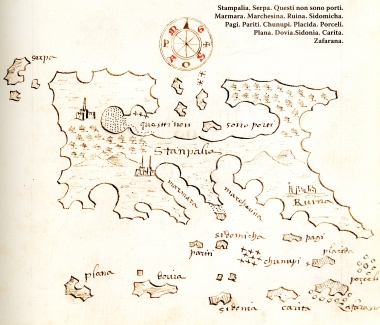 Stampalia. Serpa. Questi non sono porti.
Marmara. Marchesina. Ruina. Sidomicha.
Pagi. Pariti. Chunupi. Placida. Porceli.
Plana. Dovia.Sidonia. Carita.
Zafarana.
P
O
S
serpa
questi non sono porti
Stanpalia
marmara
marchesina
Ruina
sidomicha
pagi
parin
chunupi
placida
porceli
plana
dovra
sidonia
carita
Zafaran